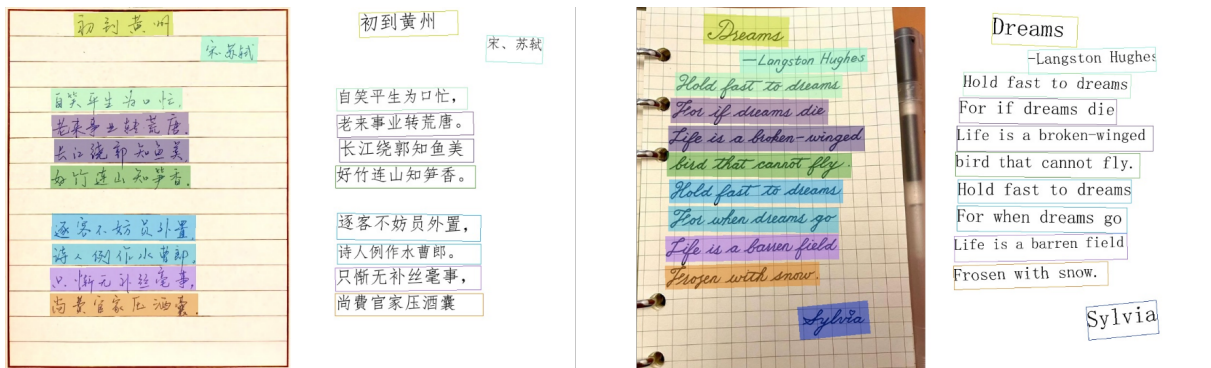 初到黄州
宋 苏轼
自笑平生为口忙,
老来事业转荒唐.
长江绕郭知鱼美,
好竹连山知笋香.
逐客不妨员外置,
诗人例作水曹郎.
只惭无补丝毫事,
尚費官家压酒囊.
初到黄州
宋、苏轼
自笑平生为口忙，
老来事业转荒唐。
长江绕郭知鱼美
好竹连山知笋香。
逐客不妨员外置，
诗人例作水曹郎。
只惭无补丝毫事，
尚費官家压酒囊
Dreams
—Langston Hughes
Hold fast to dreams
For if dreams die
Life is a broken-winged
bird that cannot fly.
Hold fast to dreams
For when dreams go
Life is a barren field
Frozen with snow.
Sylvia
Dreams
-Langston Hughes
Hold fast to dreams
For if dreams die
Life is a broken-winged
bird that cannot fly.
Hold fast to dreams
For when dreams go
Life is a barren field
Frosen with snow.
Sylvia